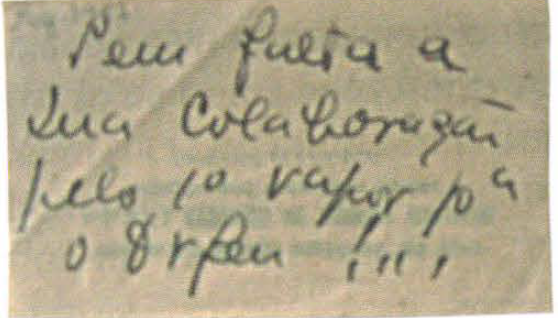 Sem falta a
sua colaboração
pelo 1º vapor pª
o Orfeu !!!!